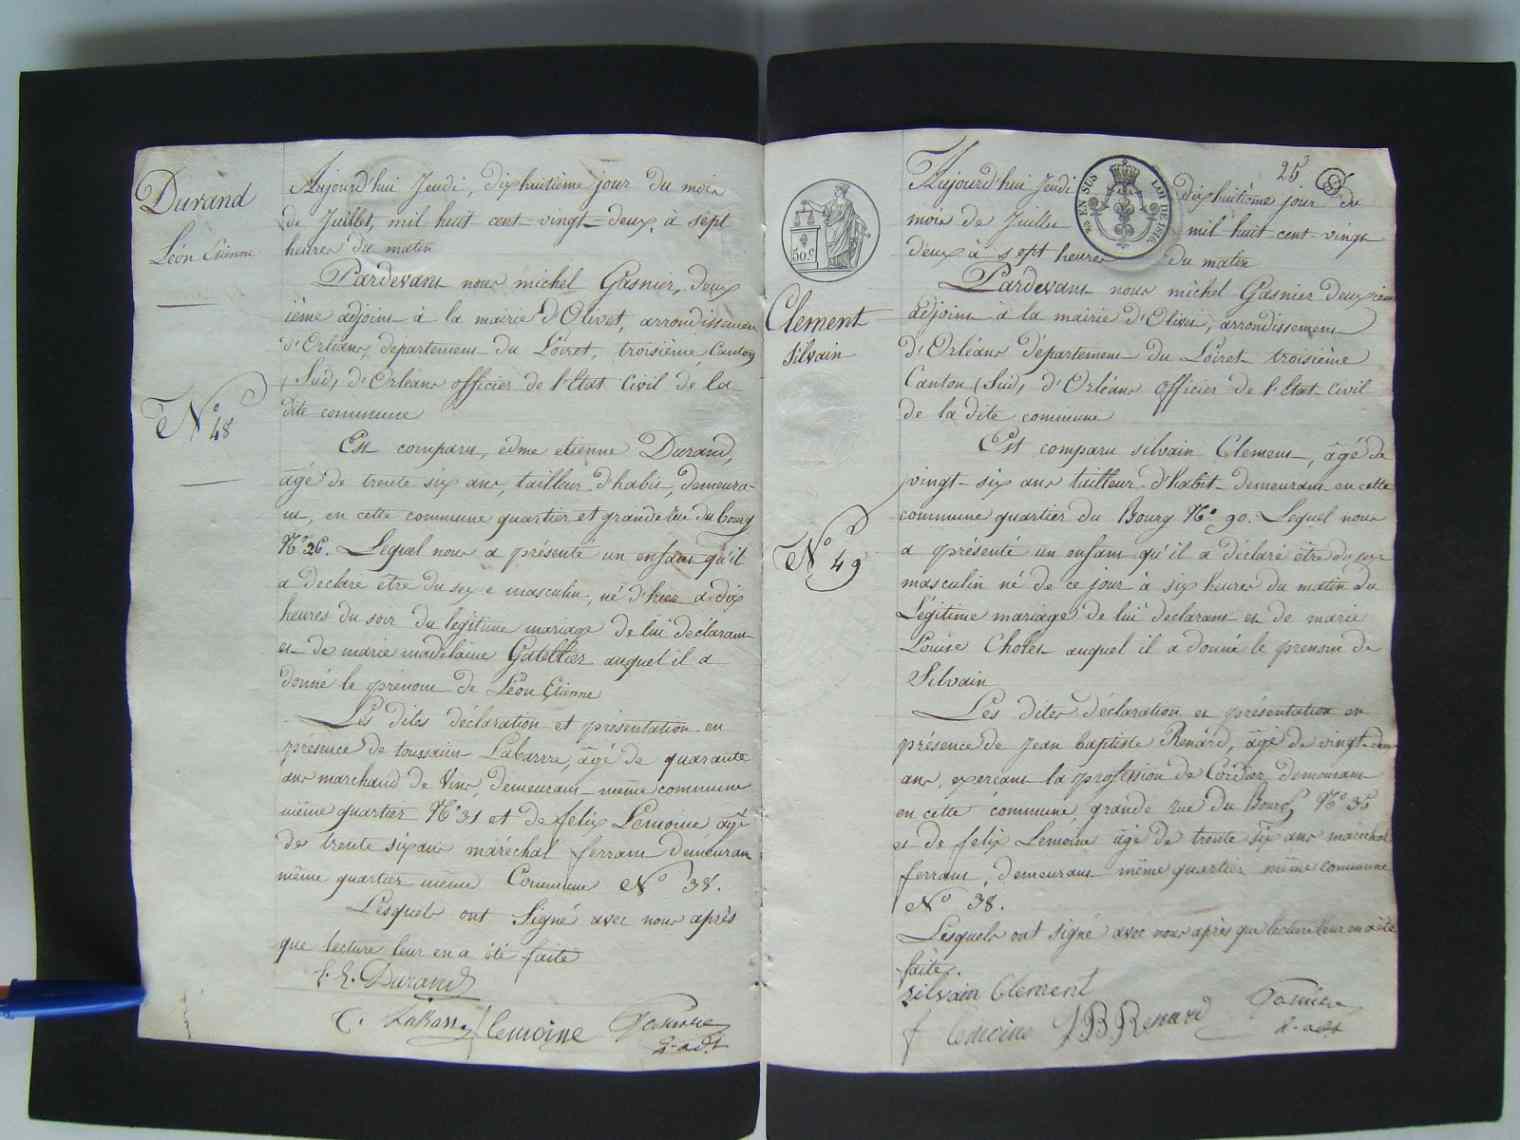 Durand
Léon Etienne
N° 48
Aujourd'hui Jeudi, dixhuitième jour du mois
de Juillet, mil huit cent vingt-deux, à sept
heures du matin
Pardevant nous michel Gasnier, deux
ième adjoint à la mairie d'Olivet, arrondissement
d'Orléans, département du Loiret, troisième Canton
(Sud) d'Orléans officier de l'Etat Civil de la
dite commune
Est comparu, edme etienne Durand,
agé de trente six ans, tailleur d'habit, demeura-
nt, en cette commune quartier et grande rue du bourg
N° 26. Lequel nous a présenté un enfant qu'il
a declaré etre du sexe masculin, né d'hier à dix
heures du soir du legitime mariage de lui déclarant
et de marie madelaine auquel il a
donné le prenom de Léon Etienne
Les dites déclaration et présentation en
présence de toussaint Labarre, âgé de quarante
ans marchand de Vins, demeurant même commune
même quartier N° 31 et de felix Lemoine agé
de trente six ans maréchal ferrant demeurant
même quartier même Commune N° 38.
Lesquels ont Signé avec nous après
que lecture leur en a été faite
E. E. Durand
T. Labarre f lemoine Gasnier
2e adjt
25
EN SUS
LOI DE 1816
50 c
Clement
Silvain
N° 49
Aujourd'hui Jeudi dixhuitième jour du
mois de Juillet mil huit cent vingt
deux à sept heures du matin
Pardevant nous michel Gasnier deuxième
adjoint à la mairie d'Olivet, arrondissement
d'Orléans département du Loiret troisième
Canton (Sud) d'Orléans officier de l'Etat Civil
de la dite commune
Est comparu silvain Clement, âgé de
vingt-six ans tailleur d'habit demeurant en cette
commune quartier du Bourg N° 90. Lequel nous
a présenté un enfant qu'il a déclaré être du sexe
masculin né de ce jour à six heures du matin du
Légitime mariage de lui déclarant et de marie
Louise Cholet auquel il a donné le prenom de
Silvain
Les dites déclaration et présentation en
présence de Jean baptiste Renard, âgé de vingt-deux
ans, exerçant la profession de Cordier demeurant
en cette commune grande rue du Bourg N° 36
et de felix Lemoine âgé de trente six ans maréchal
ferrant, demeurant même quartier même commune
N° 38.
Lesquels ont signé avec nous après que lecture leur en a été
faite.
silvain Clement
f lemoine J B Renard Gasnier
2e adjt